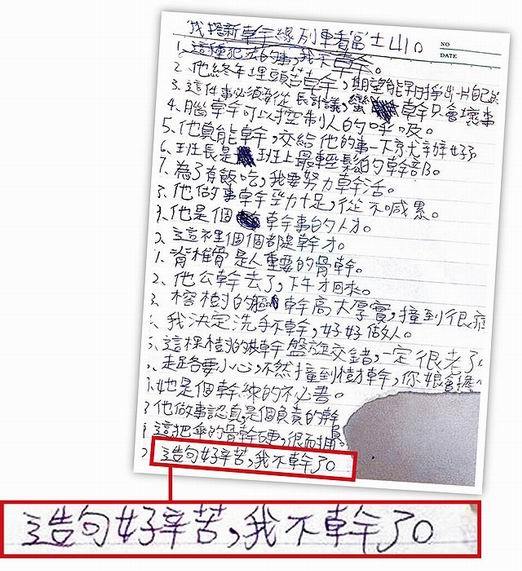 我搭新幹線列車看富士山。
NO
DATE
1.這種犯法的事,我不幹。
2.他終年埋頭苦幹,期望能打拚出一片自己的
3.這件事必須從長計議,蠻幹只會壞事
4.腦幹可以控制人的呼吸。
5.他真能幹,交給他的事一下就辦好
6.班長是班上最輕鬆的幹部。
7.為了有飯吃,我要努力幹活。
8.他做事幹勁十足,從不喊累。
9.他是個幹事的人才。
這裡個個都是幹才。
1.脊椎骨是人重要的骨幹。
2.他公幹去了,下午才回來。
3.榕樹的軀幹高大厚實,撞到很痛
我決定洗手不幹,好好做人。
5.這棵樹的枝幹盤旋交錯,一定很老了
走路要小心,不然撞到樹幹,你娘會擔心
她是個幹練的祕書。
他做事認真是個負責的幹
這把傘的骨幹硬,很耐
造句好辛苦,我不幹了。
造句好辛苦,我不幹了。